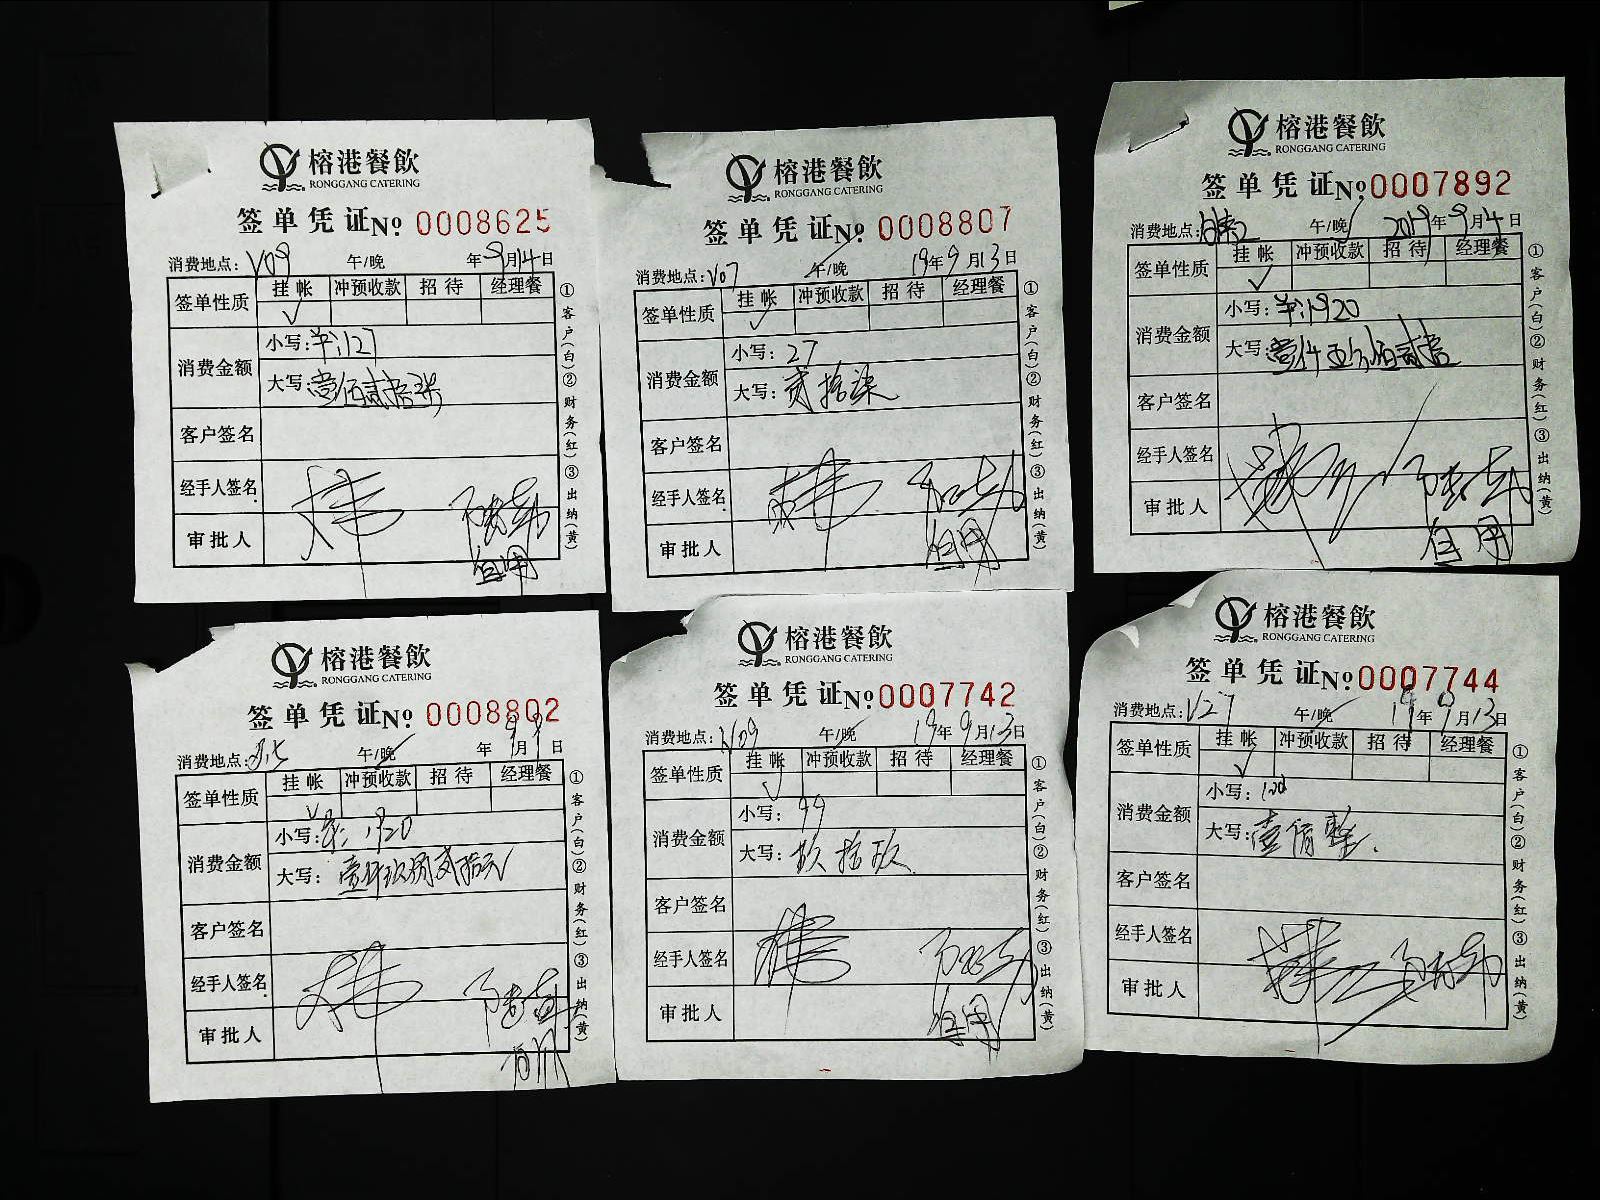 榕港餐飲
RONGGANG CATERING
签单凭证 № 0008625
消费地点: V09 午/晚 年9月14日
签单性质 挂帐 冲预收款 招待 经理餐
✓
消费金额 小写: 127
大写: 壹佰贰拾柒
客户签名
经手人签名
审批人
自用
①客户(白)②财务(红)③出纳(黄)
榕港餐飲
RONGGANG CATERING
签单凭证 № 0008807
消费地点: V07 午/晚 19年9月13日
签单性质 挂帐 冲预收款 招待 经理餐
✓
消费金额 小写: 27
大写: 贰拾柒
客户签名
经手人签名
审批人
自用
①客户(白)②财务(红)③出纳(黄)
榕港餐飲
RONGGANG CATERING
签单凭证 № 0007892
消费地点: 午/晚 2019年9月4日
签单性质 挂帐 冲预收款 招待 经理餐
✓
消费金额 小写: 1920
大写: 壹仟玖佰贰拾
客户签名
经手人签名
审批人
自用
①客户(白)②财务(红)③出纳(黄)
榕港餐飲
RONGGANG CATERING
签单凭证 № 0008802
消费地点: 午/晚 年9月9日
签单性质 挂帐 冲预收款 招待 经理餐
✓
消费金额 小写: 1920
大写: 壹仟玖佰贰拾元
客户签名
经手人签名
审批人
自用
①客户(白)②财务(红)③出纳(黄)
榕港餐飲
RONGGANG CATERING
签单凭证 № 0007742
消费地点: V09 午/晚 19年9月13日
签单性质 挂帐 冲预收款 招待 经理餐
✓
消费金额 小写: 99
大写: 玖拾玖
客户签名
经手人签名
审批人
自用
①客户(白)②财务(红)③出纳(黄)
榕港餐飲
RONGGANG CATERING
签单凭证 № 0007744
消费地点: V27 午/晚 19年9月13日
签单性质 挂帐 冲预收款 招待 经理餐
✓
消费金额 小写: 100
大写: 壹佰整.
客户签名
经手人签名
审批人
①客户(白)②财务(红)③出纳(黄)